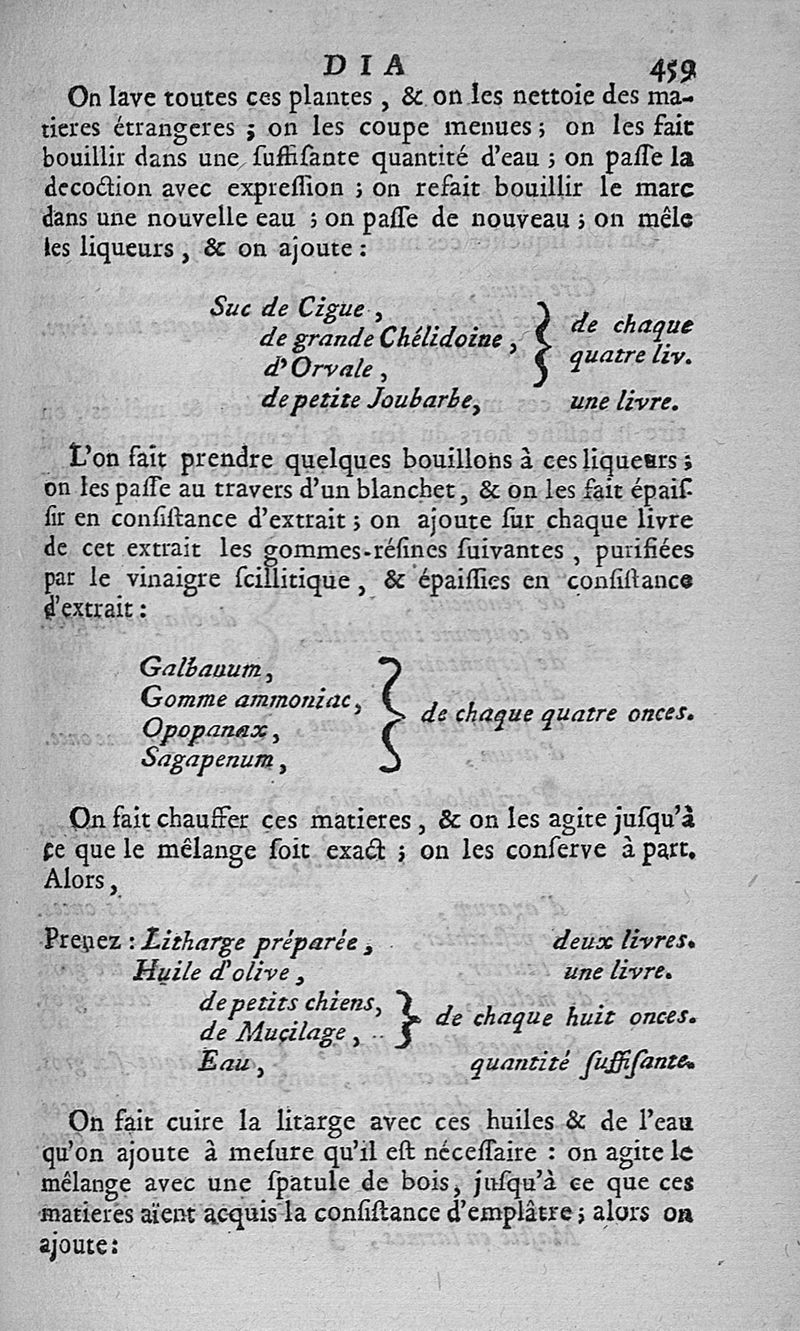 DIA 459
On lave toutes ces plantes , & on les nettoie des ma-
tieres étrangeres ; on les coupe menues ; on les fait
bouillir dans une ſuffiſante quantité d'eau ; on paſſe la
decoction avec expreſſion ; on refait bouillir le marc
dans une nouvelle eau ; on paſſe de nouveau ; on mêle
les liqueurs , & on ajoute :
Suc de Cigue ,
de grande Chélidoine ,
d'Orvale ,
de chaque
quatre liv.
de petite Joubarbe, une livre.
L'on fait prendre quelques bouillons à ces liqueurs ;
on les paſſe au travers d'un blanchet , & on les fait épaiſ-
ſir en conſiſtance d'extrait ; on ajoute ſur chaque livre
de cet extrait les gommes-réſines ſuivantes , purifiées
par le vinaigre ſcillitique , & épaiſſies en conſiſtance
d'extrait :
Galbanum ,
Gomme ammoniac ,
Opopanax ,
Sagapenum ,
de chaque quatre onces.
On fait chauffer ces matieres , & on les agite juſqu'à
ce que le mêlange ſoit exact ; on les conſerve à part.
Alors ,
Prenez : Litharge préparée , deux livres.
Huile d'olive , une livre.
de petits chiens,
de Muçilage ,
de chaque huit onces.
Eau , quantité ſuffiſante.
On fait cuire la litarge avec ces huiles & de l'eau
qu'on ajoute à meſure qu'il eſt néceſſaire : on agite le
mêlange avec une ſpatule de bois, juſqu'à ce que ces
matieres aïent acquis la conſiſtance d'emplâtre ; alors on
ajoute :